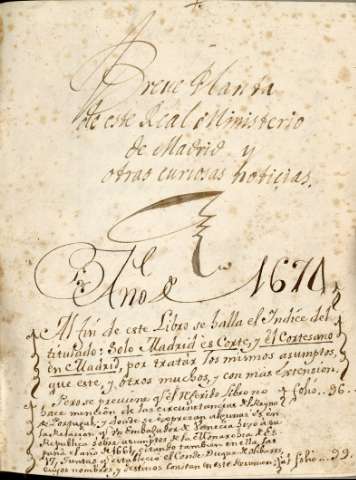 Breve Planta
de este Real Ministerio
de Madrid y
otras curiosas noticias.
Año de 1671
Al fin de este Libro se halla el Indice del
titulado: Solo Madrid es Corte, y el Cortesano
en Madrid, por tratar los mismos asumptos,
que este, y otros muchos, y con más extension.
Pero se previene q̃ el referido Libro no
hace mencion de las circunstancias del Reyno
de Portugal, y donde se expresan algunas es en
la Relacion q̃ un Embajador de Venecia hizo à su
Republica sobre asumptos de la Monarchia de Es-
paña el año de 1661, citando tambien en ella, las
17 Juntas q̃ estableció el Conde Duque de Olivares
cuyos nombres, y destinos constan en este
folio... 96.
al folio... 99.